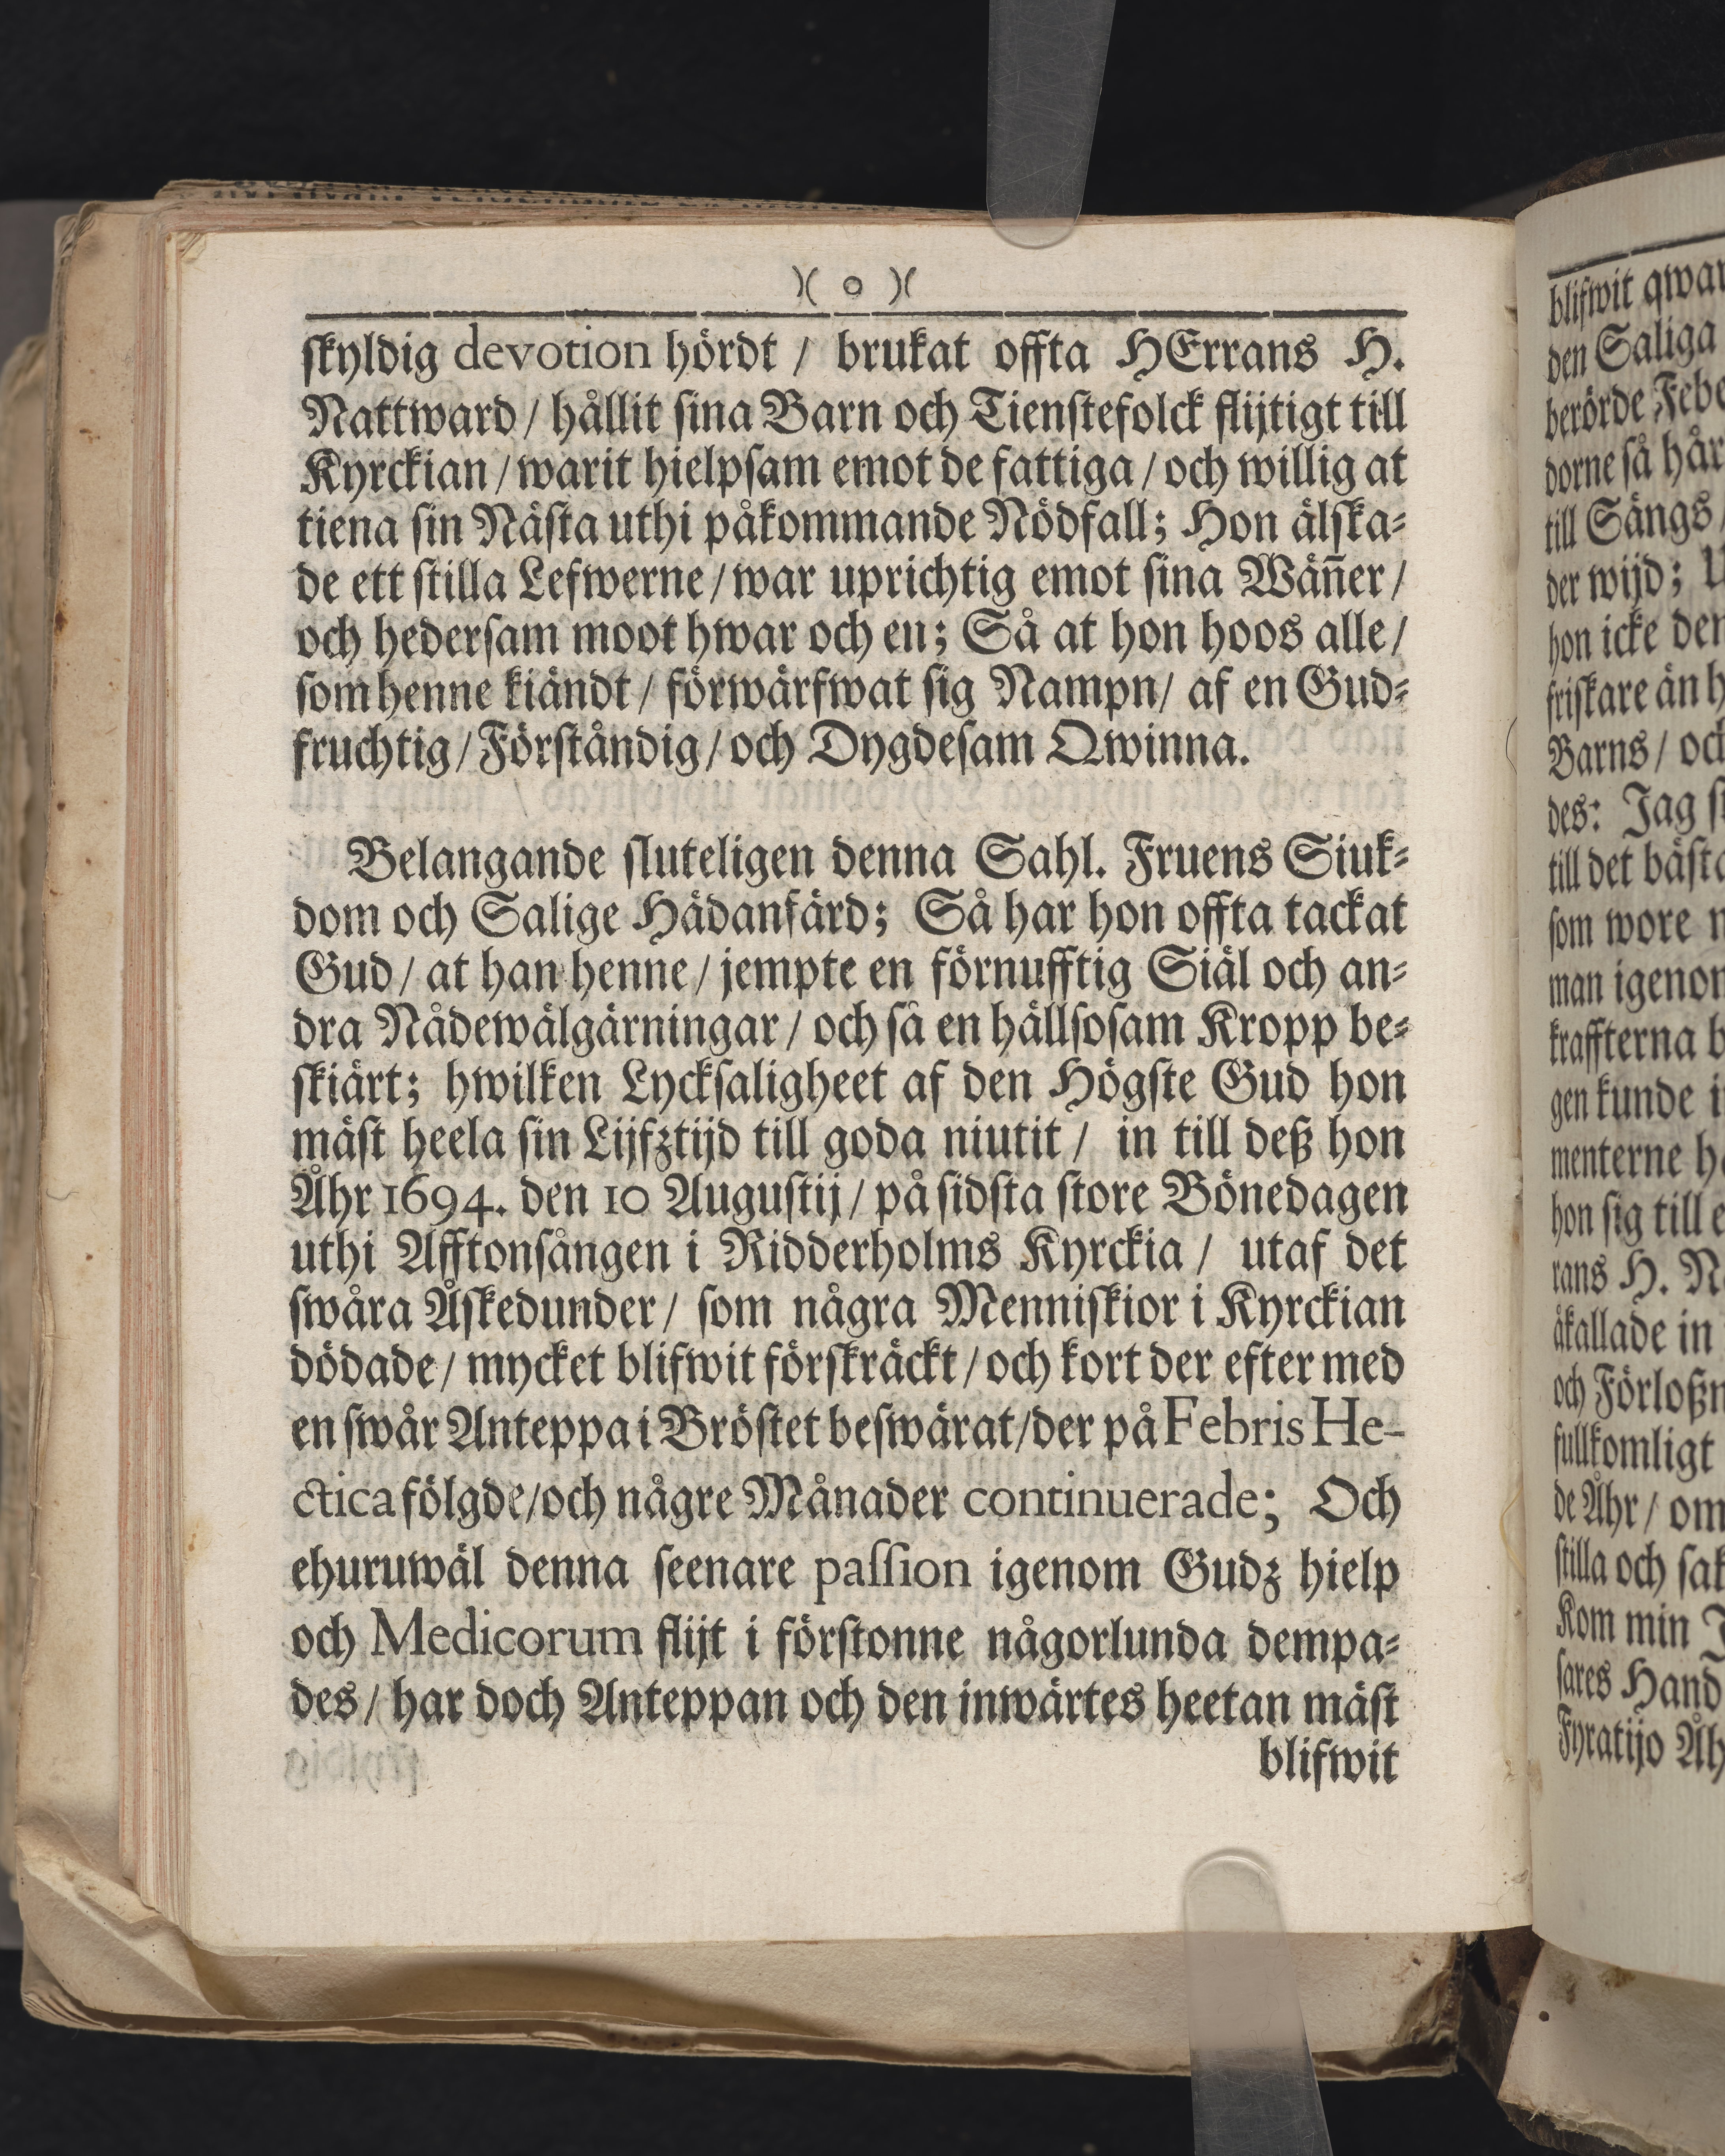 )( o )(
skyldig devotion hördt / brukat offta HErrans H.
Nattward / hållit sina Barn och Tienstefolck flijtigt till
Kyrckian / warit hielpsam emot de fattiga / och willig at
tiena sin Nästa uthi påkommande Nödfall; Hon älska-
de ett stilla Lefwerne / war uprichtig emot sina Wäñer /
och hedersam moot hwar och en; Så at hon hoos alle /
som henne kiändt / förwärfwat sig Nampn / af en Gud-
fruchtig / Förståndig / och Dygdesam Qwinna.
Belangande sluteligen denna Sahl. Fruens Siuk-
dom och Salige Hädanfärd; Så har hon offta tackat
Gud / at han henne / jempte en förnufftig Siäl och an-
dra Nådewälgärningar / och så en hällsosam Kropp be-
skiärt; hwilken Lycksaligheet af den Högste Gud hon
mäst heela sin Lijfztijd till goda niutit / in till deß hon
Åhr 1694. den 10 Augustij / på sidsta store Bönedagen
uthi Afftonsången i Ridderholms Kyrckia / utaf det
swåra Åskedunder / som några Menniskior i Kyrckian
dödade / mycket blifwit förskräckt / och kort der efter med
en swår Anteppa i Bröstet beswärat / der på Febris He-
ctica fölgde / och någre Månader continuerade; Och
ehuruwäl denna seenare passion igenom Gudz hielp
och Medicorum flijt i förstonne någorlunda dempa-
des / har doch Anteppan och den inwärtes heetan mäst
blifwit
blifwit qwar
den Saliga
berörde Febe
dorne så hår
till Sängs /
der wijd; U
hon icke den
friskare än h
Barns / och
des: Jag s
till det bästa
som wore
man igenom
kraffterna b
gen kunde i
menterne h
hon sig till e
rans H. N
åkallade in
och Förloßn
fullkomligt
de Åhr / om
stilla och sak
Kom min J
sares Hand
Fyratijo Åh